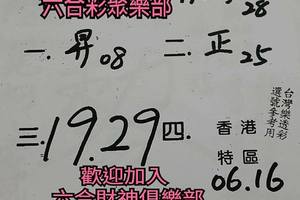 六合彩眾樂部
28
一.昇08 二.正25
台灣樂透彩
選號參考用
三.19.29 四.香港特區
06.16
歡迎加入
六合財神俱樂部